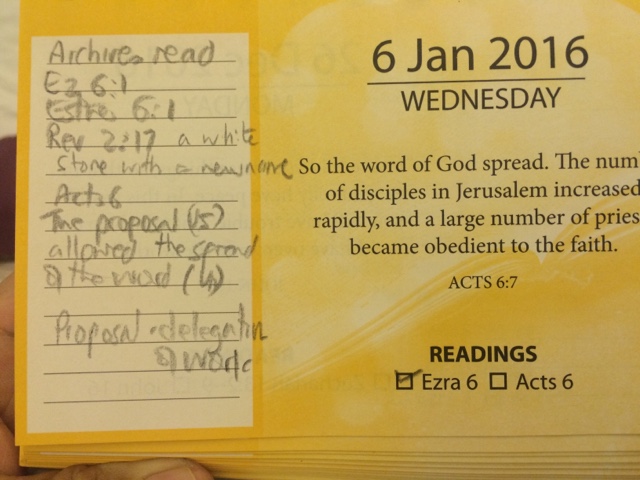 Archives read
Ez 6:1
Esther 6:1
Rev 2:17 a white
stone with a new name
Acts 6
The proposal (v5)
allowed the spread
of the word (v7)
Proposal - delegation
of work
6 Jan 2016
WEDNESDAY
So the word of God spread. The num
of disciples in Jerusalem increased
rapidly, and a large number of pries
became obedient to the faith.
ACTS 6:7
READINGS
Ezra 6 Acts 6